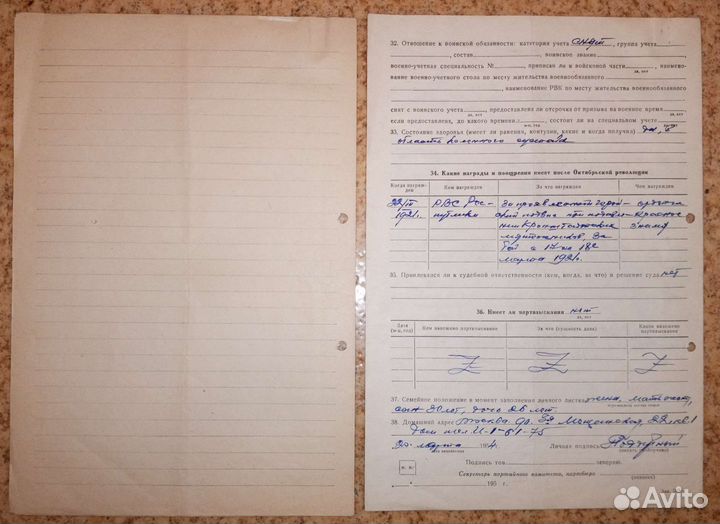 32. Отношение к воинской обязанности: категория учета снят, группа учета
, состав , воинское звание ,
военно-учетная специальность № , приписан ли к войсковой части , наимено-
да, нет
вание военно-учетного стола по месту жительства военнообязанного
, наименование РВК по месту жительства военнообязанного
снят с воинского учета , предоставлена ли отсрочка от призыва на военное время
да, нет
да, нет
если предоставлена, до какого времени , состоит ли на специальном учете
м-ц, год
да, нет
33. Состояние здоровья (имеет ли ранения, контузии, какие и когда получил) да, в
области коленного сустава
34. Какие награды и поощрения имеет после Октябрьской революции
Когда награж-
ден
Кем награжден
За что награжден
Чем награжден
1921г.
РВС Рес-
публики
За
подвиг при
Кронштадтских
мятежников, за
бой с 17 на 18
марта 1921г.
ордена
Красное
знамя
35. Привлекался ли к судебной ответственности (кем, когда, за что) и решение суда нет
36. Имеет ли партвзыскания нет
да, нет
Дата
(м-ц, год)
Кем наложено партвзыскание
За что (сущность дела)
Какое наложено
партвзыскание
Z
Z
Z
37. Семейное положение в момент заполнения личного листка жена,
сын 20 лет, дочь 26 лет.
38. Домашний адрес Москва 22 кв 1
дом тел И-1-61-75
20 марта 1954. Личная подпись
Подпись тов. заверяю.
М. П.
Секретарь партийного комитета, партбюро
(подпись)
195 г.
Avito